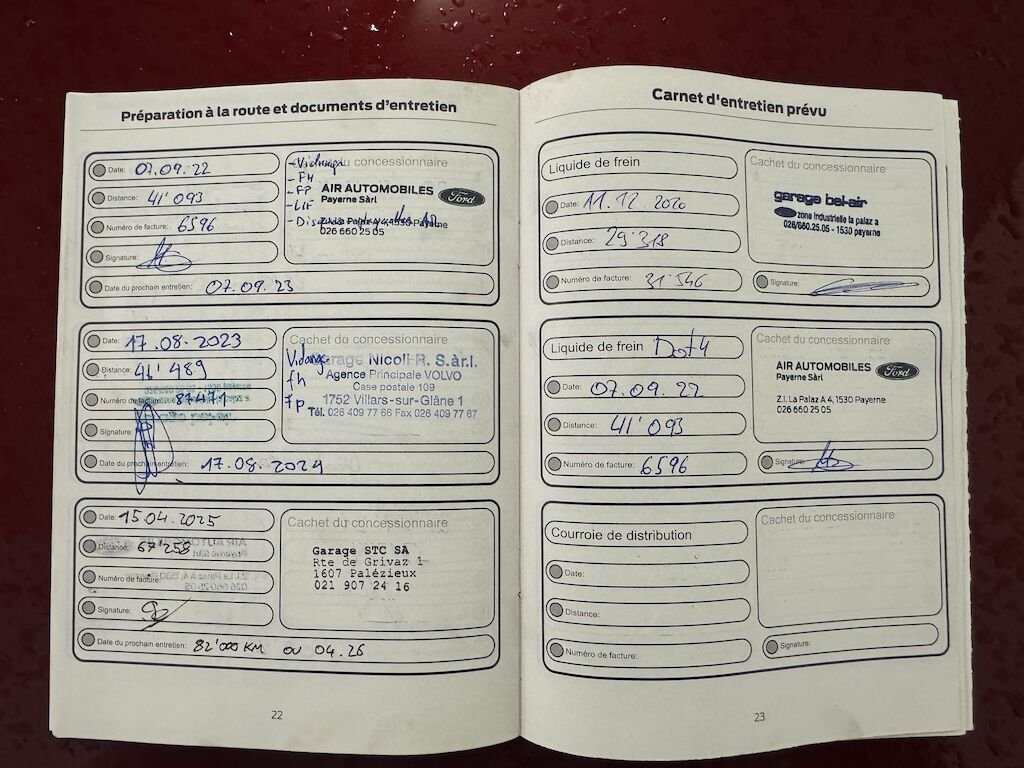 Préparation à la route et documents d'entretien
Date: 07.09.22
Distance: 41'093
Numéro de facture: 6596
Signature:
Date du prochain entretien: 07.09.23
Cachet du concessionnaire
- Vidange
- FH
- FP
- LIF
AIR AUTOMOBILES
Payerne Sàrl
Ford
Z.I. La Palaz A 4, 1530 Payerne
026 660 25 05
Date: 17.08.2023
Distance: 46'489
Numéro de facture: 87471
Signature:
Date du prochain entretien: 17.08.2024
Cachet du concessionnaire
Vidange
fh
fp
Garage Nicoli R. S.àr.l.
Agence Principale VOLVO
Case postale 109
1752 Villars-sur-Glâne 1
Tél. 026 409 77 66 Fax 026 409 77 67
Date: 15.04.2025
Distance: 67'258
Numéro de facture:
Signature:
Date du prochain entretien: 82'000 KM OU 04.26
Cachet du concessionnaire
Garage STC SA
Rte de Grivaz 1
1607 Palézieux
021 907 24 16
22
Carnet d'entretien prévu
Liquide de frein
Date: 11.12.2020
Distance: 29'318
Numéro de facture: 31'546
Cachet du concessionnaire
garage bel-air
zone industrielle la palaz a
026/660.25.05 - 1530 payerne
Signature:
Liquide de frein Dot4
Date: 07.09.22
Distance: 41'093
Numéro de facture: 6596
Cachet du concessionnaire
AIR AUTOMOBILES
Payerne Sàrl
Ford
Z.I. La Palaz A 4, 1530 Payerne
026 660 25 05
Signature:
Courroie de distribution
Date:
Distance:
Numéro de facture:
Cachet du concessionnaire
Signature:
23